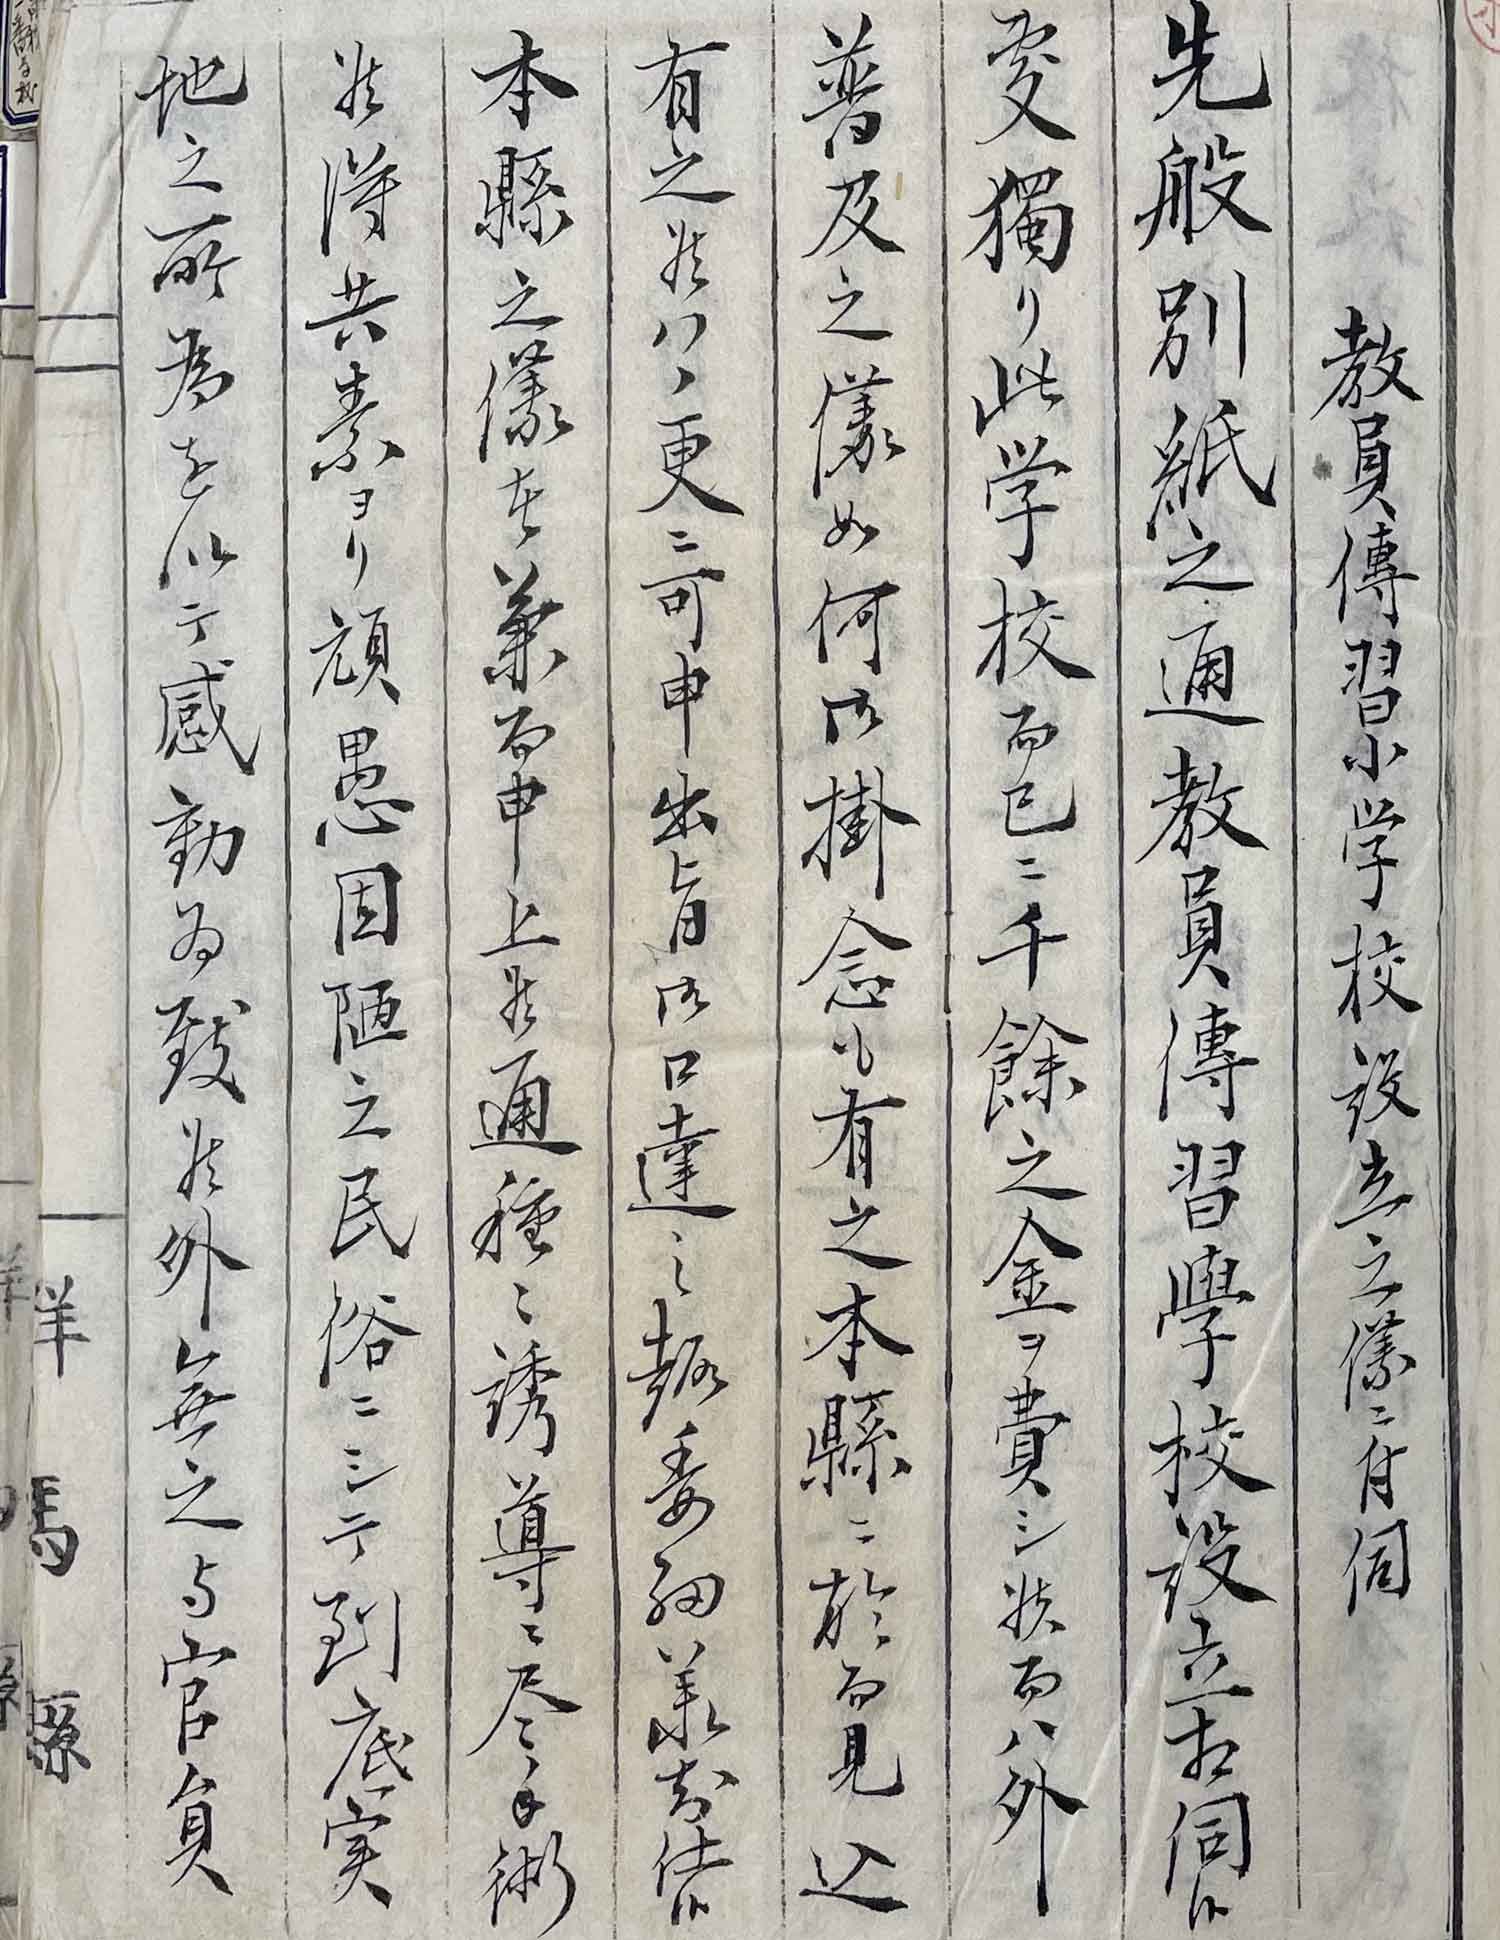 教員傳習小学校設立之儀ニ付伺
先般別紙之通教員傳習學校設立相伺候
処獨リ此学校而已ニ千餘之金ヲ費シ候而ハ外
普及之儀如何御掛念も有之本縣ニ於而見込
有之候ハヽ更ニ可申出旨御口達之趣委細承知仕候
本縣之儀者兼而申上候通種々誘導ニ尽手術
候得共素ヨリ頑愚固陋之民俗ニシテ到底実
地之所為を以テ感動為致候外無之与官員
群馬縣